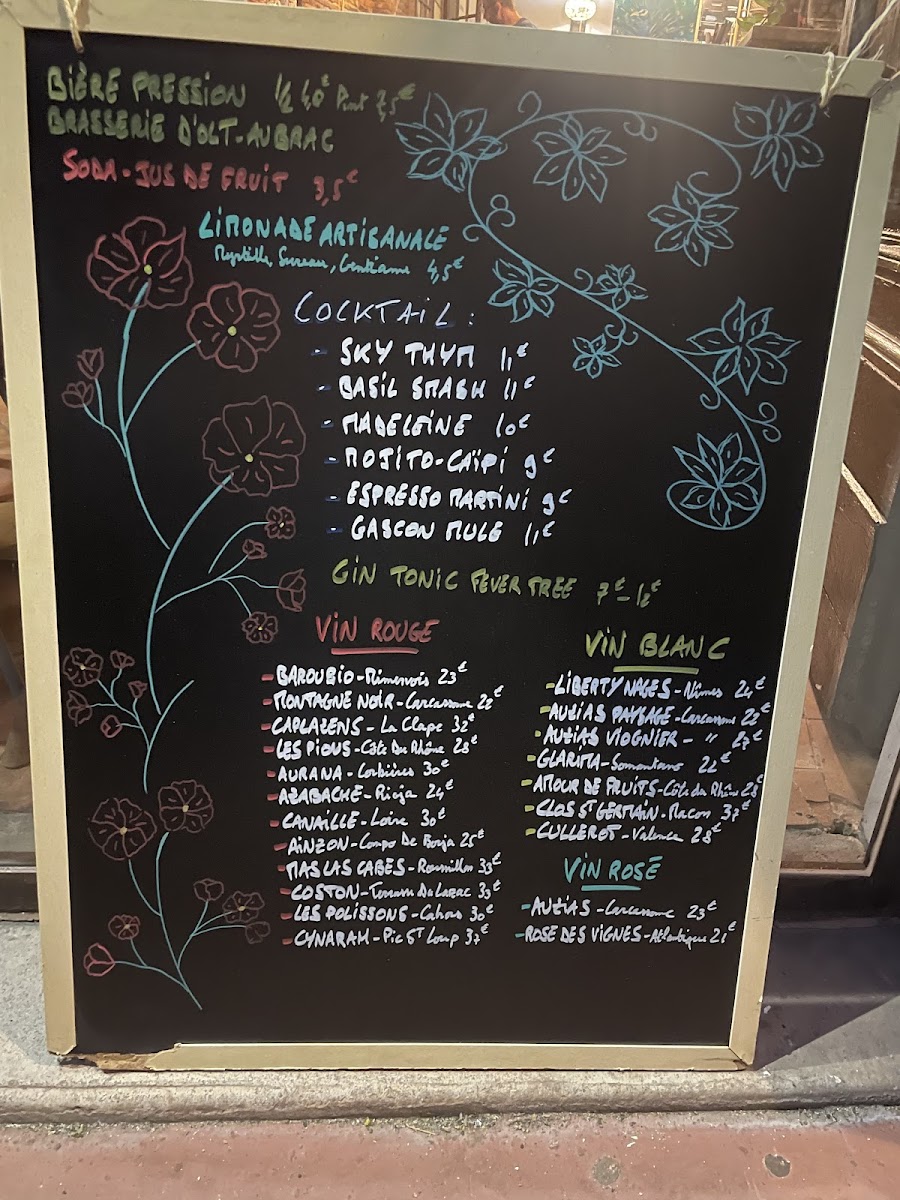 BIÈRE PRESSION 1/2 4,0€ Pint 7,5€
BRASSERIE D'OLT-AUBRAC
SODA-JUS DE FRUIT 3,5€
LIMONADE ARTISANALE
Myrtille, Sureau, Gentiane 4,5€
COCKTAIL :
- SKY THYM 11€
- BASIL SMASH 11€
- MADELEINE 10€
- MOJITO-CAÏPI 9€
- ESPRESSO MARTINI 9€
- GASCON MULE 11€
GIN TONIC FEVER TREE 7€-12€
VIN ROUGE
-BAROUBIO-Minervois 23€
-MONTAGNE NOIR-Carcassonne 22€
-CAPLAZENS-La Clape 32€
-LES PIOUS-Côte Du Rhône 28€
-AURANA-Corbières 30€
-AZABACHE-Rioja 24€
-CANAILLE-Loire 30€
-AINZON-Campo De Borja 25€
-MAS LAS CABES-Roussillon 33€
-COSTON-Terrasses Du Larzac 33€
-LES POLISSONS-Cahors 30€
-CYNARAH-Pic St Loup 37€
VIN BLANC
-LIBERTY NAGES-Nîmes 24€
-AUZIAS PAYSAGE-Carcassonne 22€
-AUZIAS VIOGNIER- " 27€
-GLARIMA-Somontano 22€
-AMOUR DE FRUITS-Côte du Rhône 28€
-CLOS ST GERMAIN-Macon 37€
-CULLEROT-Valence 28€
VIN ROSE
-AUZIAS-Carcassonne 23€
-ROSE DES VIGNES-Atlantique 21€